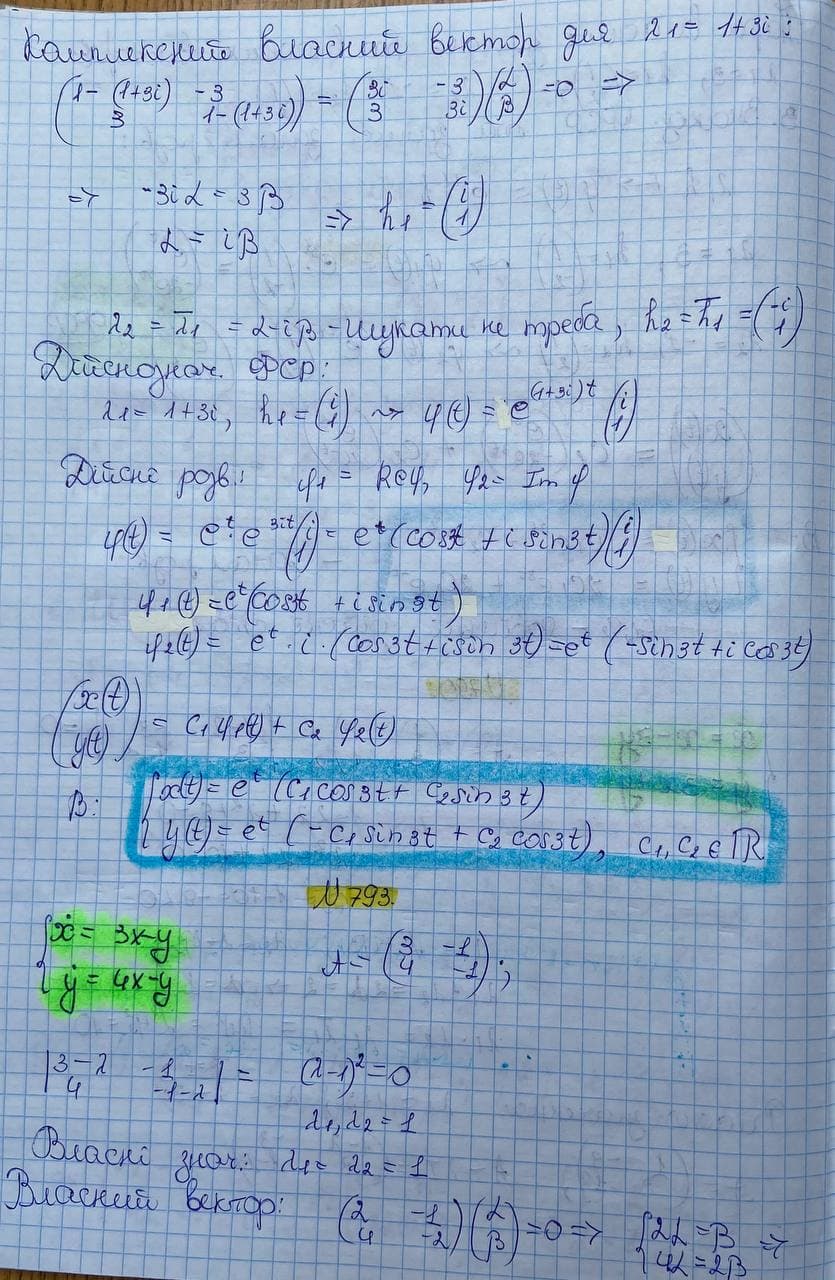 Комплексний власний вектор для λ1 = 1+3i:
(1-(1+3i) -3
3 1-(1+3i)) = (3i -3
3 3i)(α
β) = 0 =>
=> -3iα = 3β
α = iβ => h1 = (i
1)
λ2 = λ̄1 = α-iβ - шукати не треба, h2 = h̄1 = (-i
1)
Дійснознач. ФСР:
λ1 = 1+3i, h1 = (i
1) ⇝ φ(t) = e^(1+3i)t (i
1)
Дійсні розв.: φ1 = Reφ, φ2 = Im φ
φ(t) = e^t · e^3it (i
1) = e^t (cos3t + i sin3t)(i
1) =
φ1(t) = e^t(cos3t + i sin3t)
φ2(t) = e^t · i · (cos3t + i sin 3t) = e^t (-sin3t + i cos3t)
(x(t)
y(t)) = c1 φ1(t) + c2 φ2(t)
В: {x(t) = e^t (c1 cos3t + c2 sin3t)
y(t) = e^t (-c1 sin3t + c2 cos3t), c1, c2 ∈ ℝ
N 793.
{ẋ = 3x-y
ẏ = 4x-y
A = (3 -1
4 -1);
|3-λ -1
4 -1-λ| = (λ-1)^2 = 0
λ1, λ2 = 1
Власні знач.: λ1 = λ2 = 1
Власний вектор: (2 -1
4 -2)(α
β) = 0 => {2α = β
4α = 2β =>